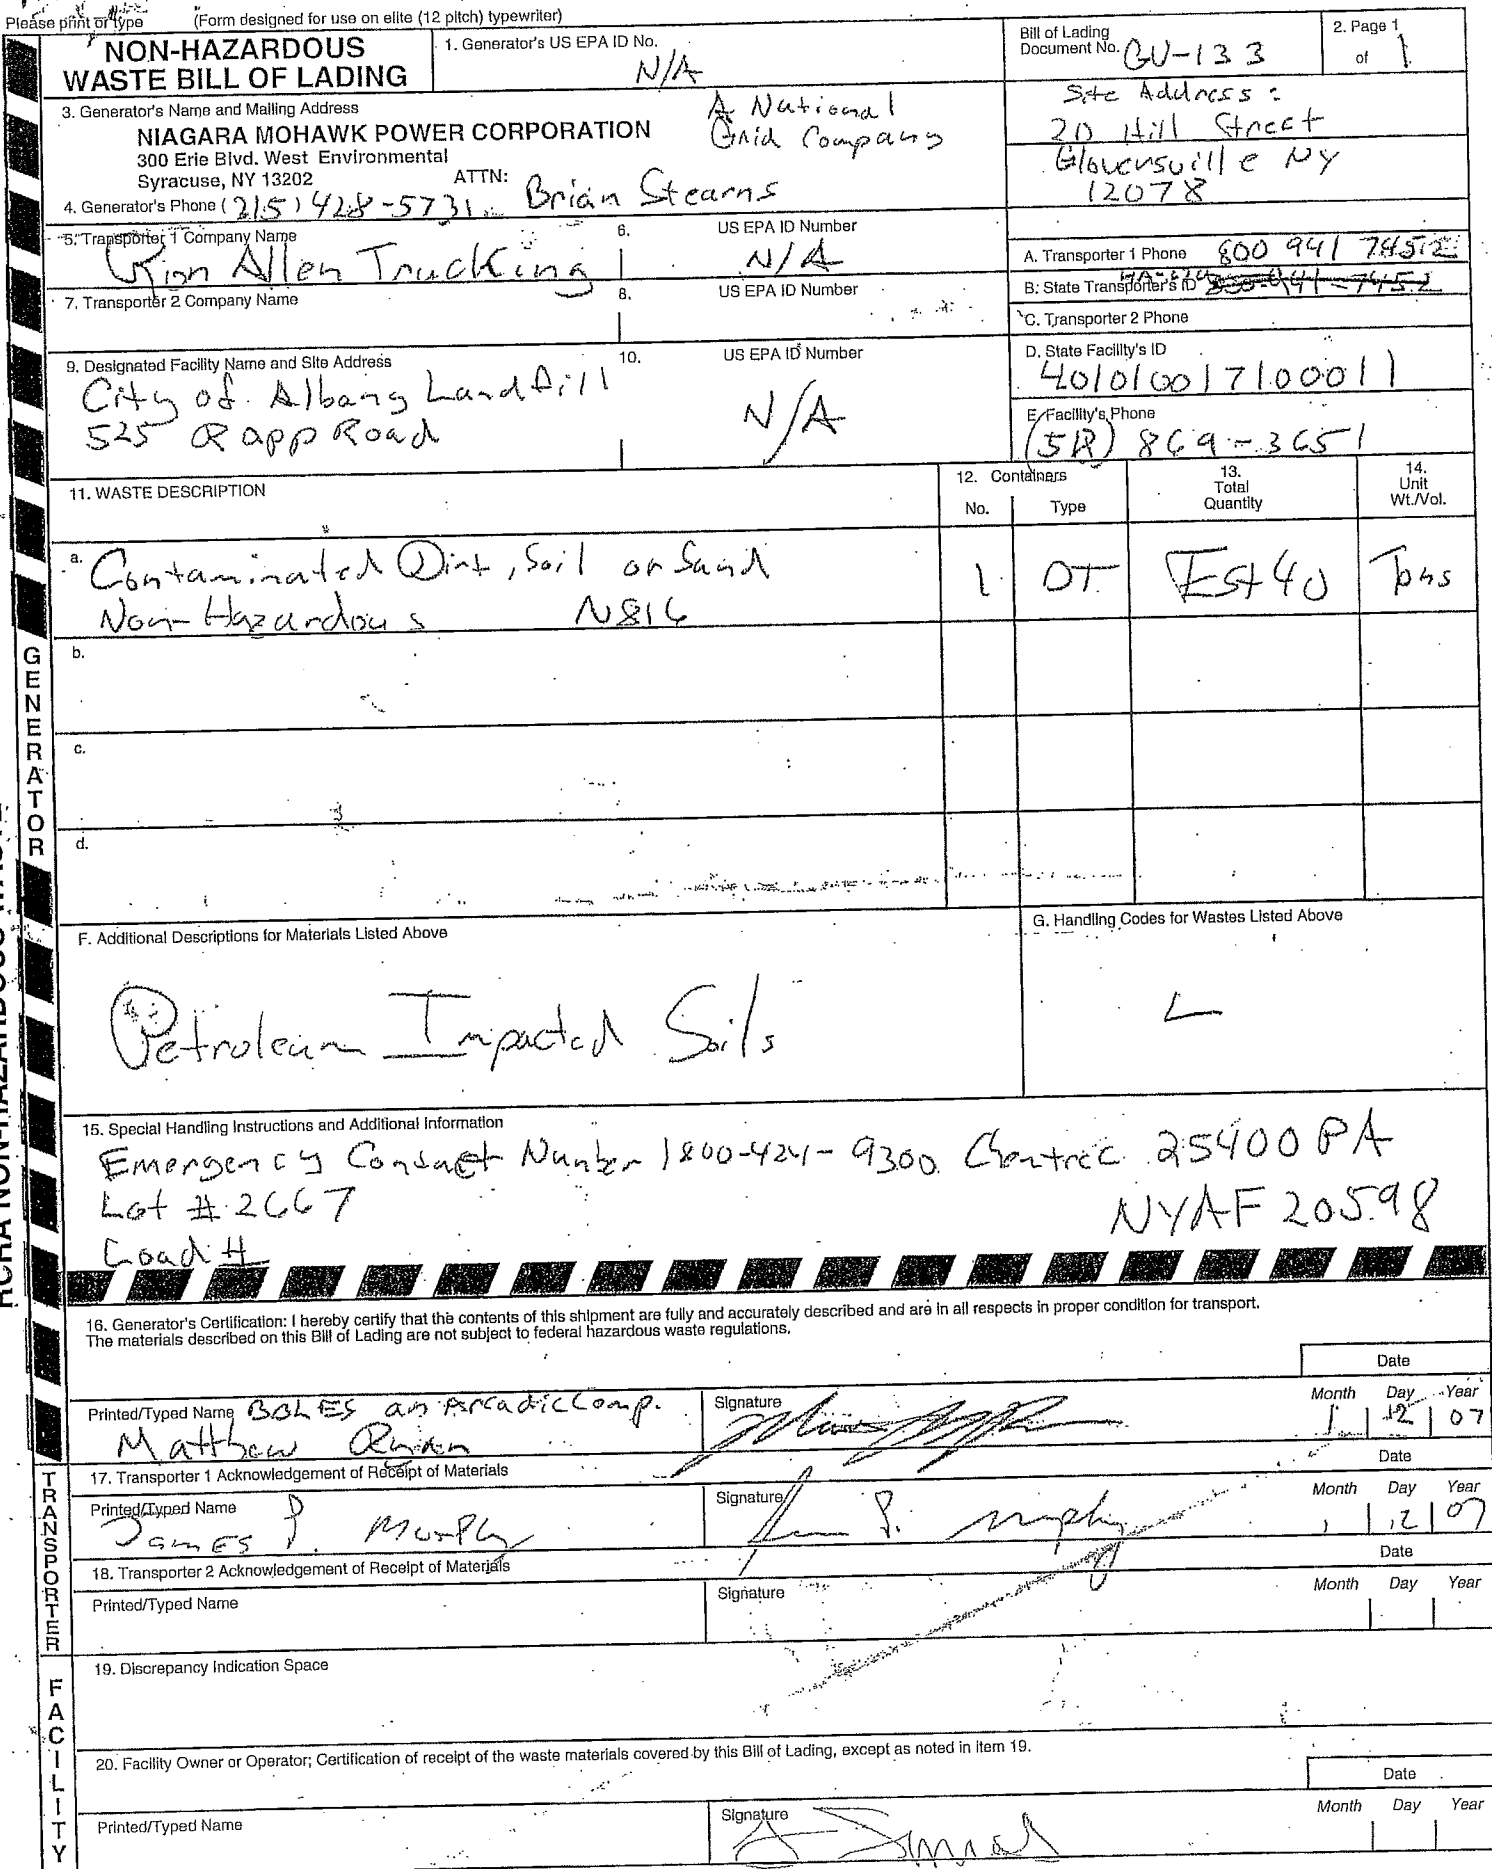 Please print or type (Form designed for use on elite (12 pitch) typewriter)
NON-HAZARDOUS
WASTE BILL OF LADING
1. Generator's US EPA ID No.
N/A
Bill of Lading
Document No. GV-133
2. Page 1
of 1
3. Generator's Name and Mailing Address
NIAGARA MOHAWK POWER CORPORATION
300 Erie Blvd. West Environmental
Syracuse, NY 13202 ATTN: Brian Stearns
A National
Grid Company
4. Generator's Phone (315) 428-5731
Site Address:
20 Hill Street
Gloversville NY
12078
5. Transporter 1 Company Name
Allen Trucking
6. US EPA ID Number
N/A
A. Transporter 1 Phone 800 941 7452
B. State Transporter's ID
7. Transporter 2 Company Name
8. US EPA ID Number
C. Transporter 2 Phone
9. Designated Facility Name and Site Address
City of Albany Landfill
525 Rapp Road
10. US EPA ID Number
N/A
D. State Facility's ID
40101001710001 1
E. Facility's Phone
(518) 869-3651
11. WASTE DESCRIPTION
12. Containers
No. Type
13.
Total
Quantity
14.
Unit
Wt./Vol.
a. Contaminated Dirt, Soil or Sand
Non-Hazardous N816
1 DT Est 40 Tons
b.
c.
d.
GENERATOR
F. Additional Descriptions for Materials Listed Above
Petroleum Impacted Soils
G. Handling Codes for Wastes Listed Above
L
15. Special Handling Instructions and Additional Information
Emergency Contact Number 1800-424-9300 Chemtrec 25400 PA
Lot # 2667 NYAF 20598
Load #
16. Generator's Certification: I hereby certify that the contents of this shipment are fully and accurately described and are in all respects in proper condition for transport.
The materials described on this Bill of Lading are not subject to federal hazardous waste regulations.
Date
Printed/Typed Name BBLES an Arcadic Comp.
Matthew
Signature
Month Day Year
1 12 07
17. Transporter 1 Acknowledgement of Receipt of Materials
Date
Printed/Typed Name
James P. Murphy
Signature
James P. Murphy
Month Day Year
1 12 07
TRANSPORTER
18. Transporter 2 Acknowledgement of Receipt of Materials
Date
Printed/Typed Name
Signature
Month Day Year
19. Discrepancy Indication Space
FACILITY
20. Facility Owner or Operator; Certification of receipt of the waste materials covered by this Bill of Lading, except as noted in item 19.
Date
Printed/Typed Name
Signature
Month Day Year